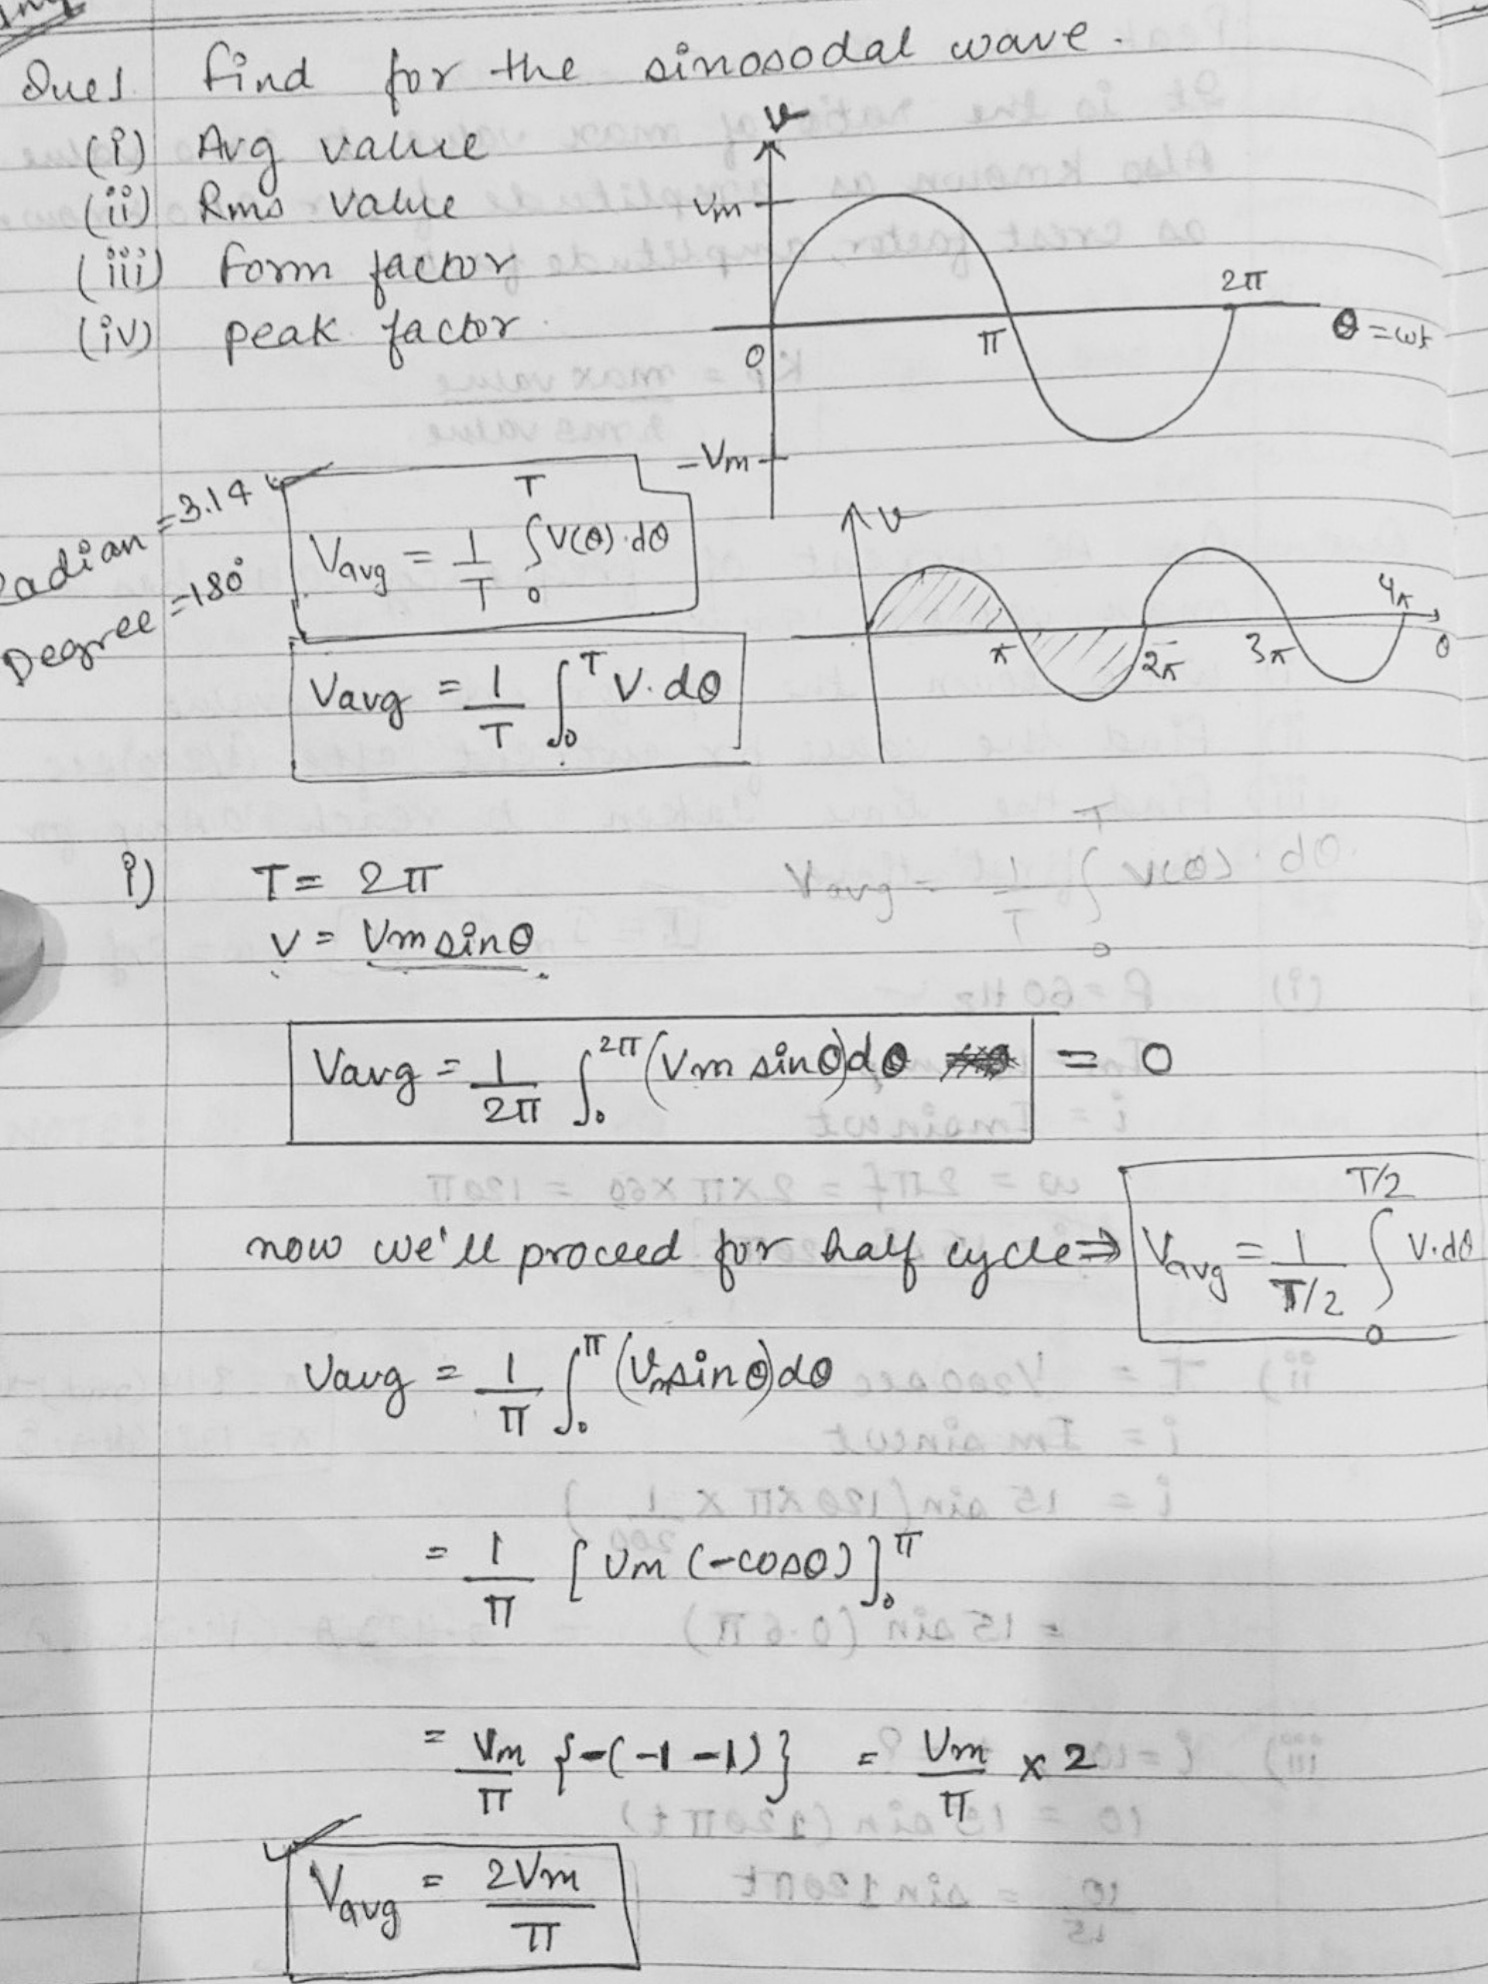 Ques find for the sinosodal wave.
(i) Avg value
(ii) Rms value
(iii) form factor
(iv) peak factor
v
Vm
0
π
2π
θ = ωt
-Vm
Radian = 3.14
Degree = 180°
Vavg = 1/T ∫₀ᵀ V(θ).dθ
Vavg = 1/T ∫₀ᵀ V.dθ
v
π
2π
3π
4π
θ
i) T = 2π
v = Vm sinθ
Vavg = 1/2π ∫₀^2π (Vm sinθ)dθ = 0
now we'll proceed for half cycle ⇒ Vavg = 1/T/2 ∫₀^T/2 V.dθ
Vavg = 1/π ∫₀^π (Vm sinθ)dθ
= 1/π [Vm (-cosθ)]₀^π
= Vm/π {-(-1-1)} = Vm/π × 2
Vavg = 2Vm/π